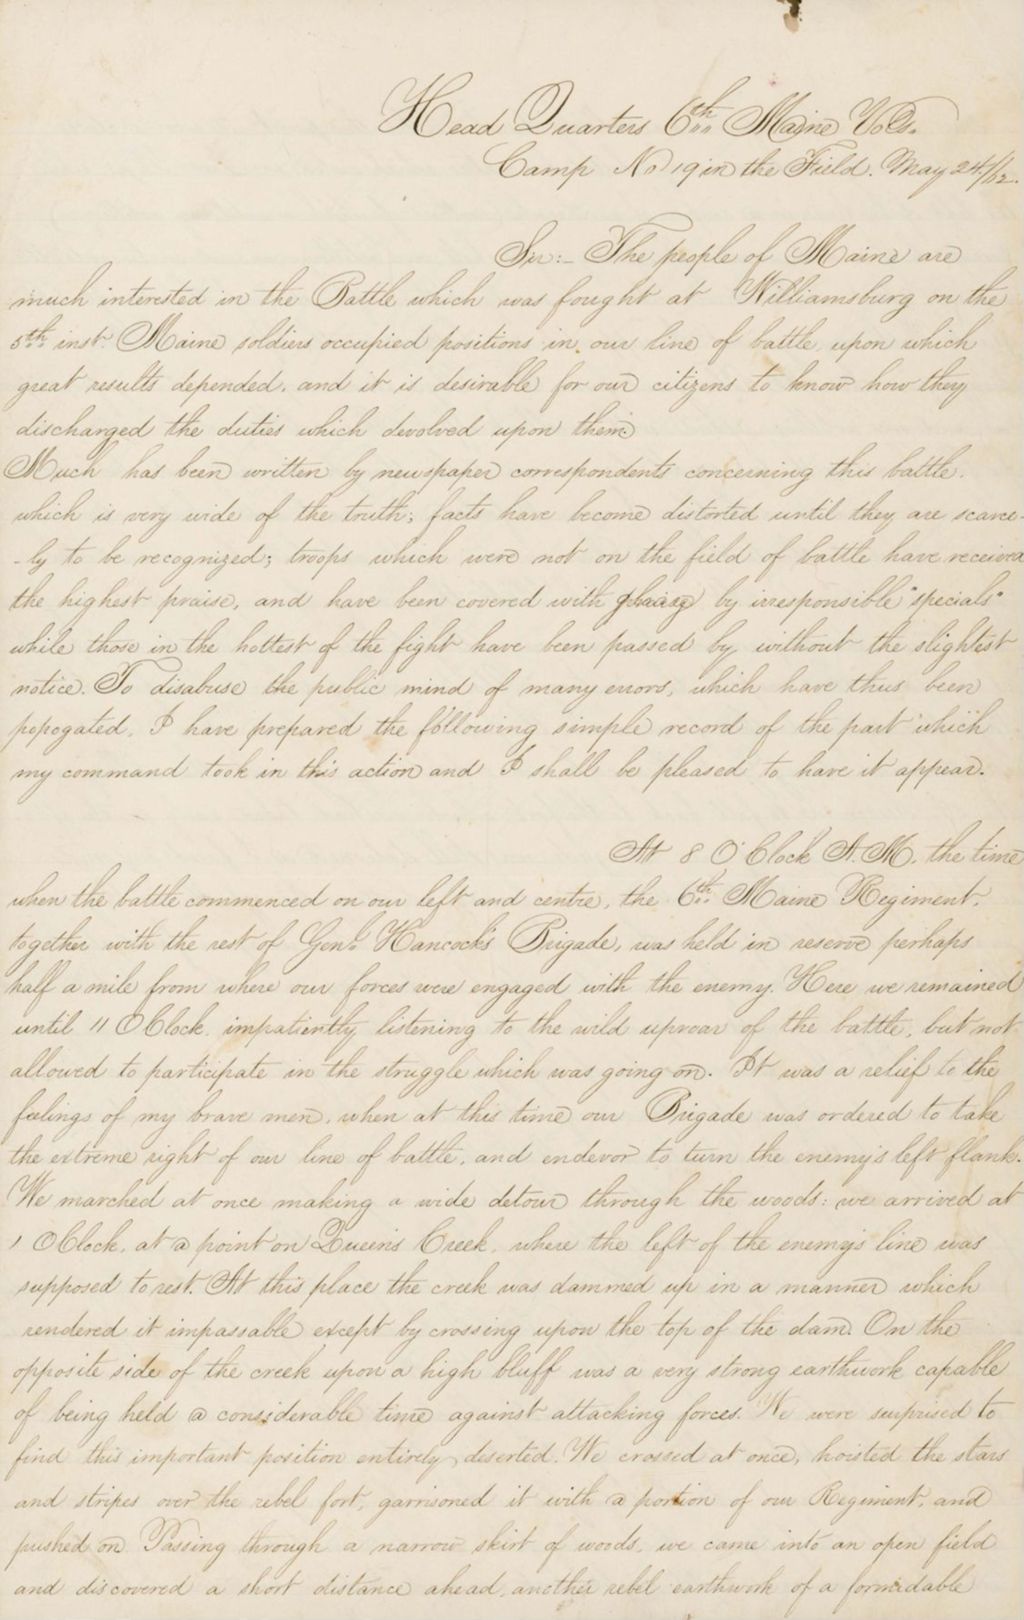 Head Quarters 6th Maine Vols.
Camp No 19 in the Field. May 24/62.
Sir:- The people of Maine are
much interested in the Battle which was fought at Williamsburg on the
5th inst. Maine soldiers occupied positions in our line of battle, upon which
great results depended, and it is desirable for our citizens to know how they
discharged the duties which devolved upon them
Much has been written by newspaper correspondents concerning this battle,
which is very wide of the truth; facts have become distorted until they are scarce-
-ly to be recognized; troops which were not on the field of battle have received
the highest praise, and have been covered with by irresponsible "specials"
while those in the hottest of the fight have been passed by, without the slightest
notice. To disabuse the public mind of many errors, which have thus been
popogated, I have prepared the following simple record of the part which
my command took in this action and I shall be pleased to have it appear.
At 8 O'Clock A.M. the time
when the battle commenced on our left and centre, the 6th Maine Regiment,
together with the rest of Genl. Hancock's Brigade, was held in reserve perhaps
half a mile from where our forces were engaged with the enemy. Here we remained
until 11 OClock, impatiently listening to the wild uproar of the battle, but not
allowed to participate in the struggle which was going on. It was a relief to the
feelings of my brave men, when at this time our Brigade was ordered to take
the extreme right of our line of battle, and endevor to turn the enemy's left flank.
We marched at once making a wide detour through the woods: we arrived at
1 OClock, at a point on Queen's Creek, where the left of the enemy's line was
supposed to rest. At this place the creek was dammed up in a manner which
rendered it impassable except by crossing upon the top of the dam. On the
opposite side of the creek upon a high bluff was a very strong earthwork capable
of being held a considerable time against attacking forces. We were surprised to
find this important position entirely deserted. We crossed at once, hoisted the stars
and stripes over the rebel fort, garrisoned it with a portion of our Regiment, and
pushed on. Passing through a narrow skirt of woods, we came into an open field
and discovered a short distance ahead, another rebel earthwork of a formidable